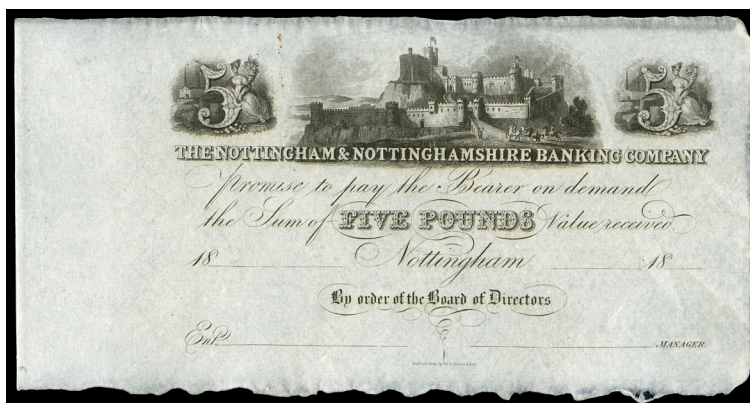 5 5
THE NOTTINGHAM & NOTTINGHAMSHIRE BANKING COMPANY
Promise to pay the Bearer on demand
the Sum of FIVE POUNDS Value received.
18 Nottingham 18
By order of the Board of Directors
Entd. MANAGER.